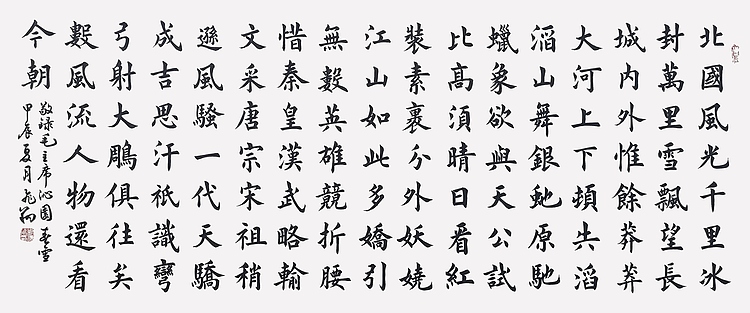 北國風光千里冰
封萬里雪飄望長
城内外惟餘莽莽
大河上下頓失滔
滔山舞銀虵原馳
蠟象欲與天公試
比髙須晴日看紅
裝素裹分外妖嬈
江山如此多嬌引
無數英雄競折腰
惜秦皇漢武略輸
文采唐宗宋祖稍
遜風騷一代天驕
成吉思汗祇識彎
弓射大鵰俱往矣
數風流人物還看
今朝
敬録毛主席沁園春雪
甲辰夏月